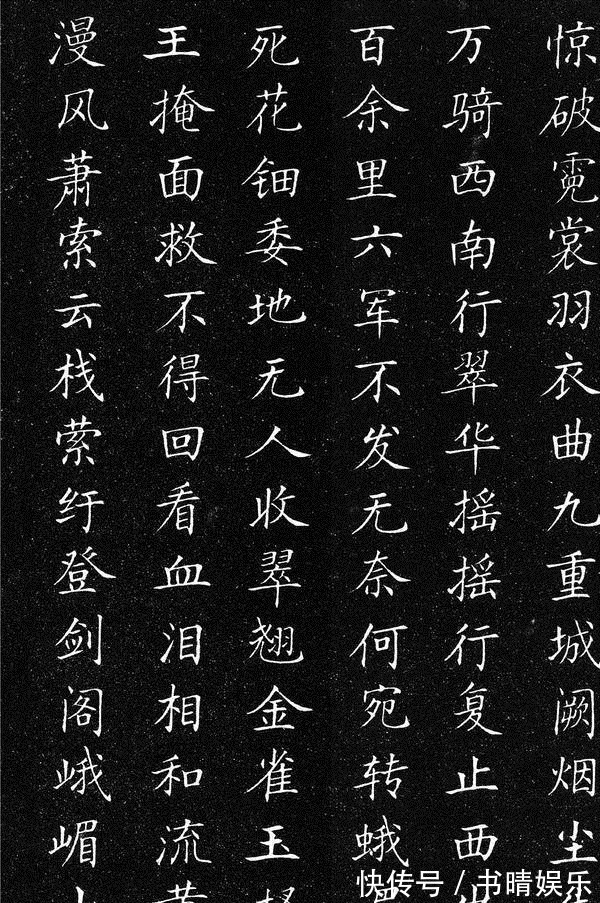 惊破霓裳羽衣曲九重城阙烟尘
万骑西南行翠华摇摇行复止西
百余里六军不发无奈何宛转蛾
死花钿委地无人收翠翘金雀玉
王掩面救不得回看血泪相和流
漫风萧索云栈萦纡登剑阁峨嵋
快传号/书晴娱乐